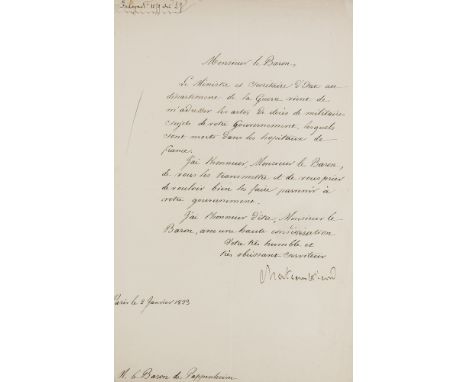 Monsieur le Baron,
Le Ministre et Secrétaire d'Etat au
département de la Guerre vient de
m'adresser les actes de décès de militaires
sujets de votre Gouvernement, lesquels
sont morts dans les hôpitaux de
france.
J'ai l'honneur, Monsieur le Baron,
de vous les transmettre et de vous prier
de vouloir bien les faire parvenir à
votre gouvernement.
J'ai l'honneur d'être, Monsieur le
Baron, avec une haute considération
Votre très humble et
très obéissant serviteur
Paris le 2 Janvier 1823
M. le Baron de Pappenheim